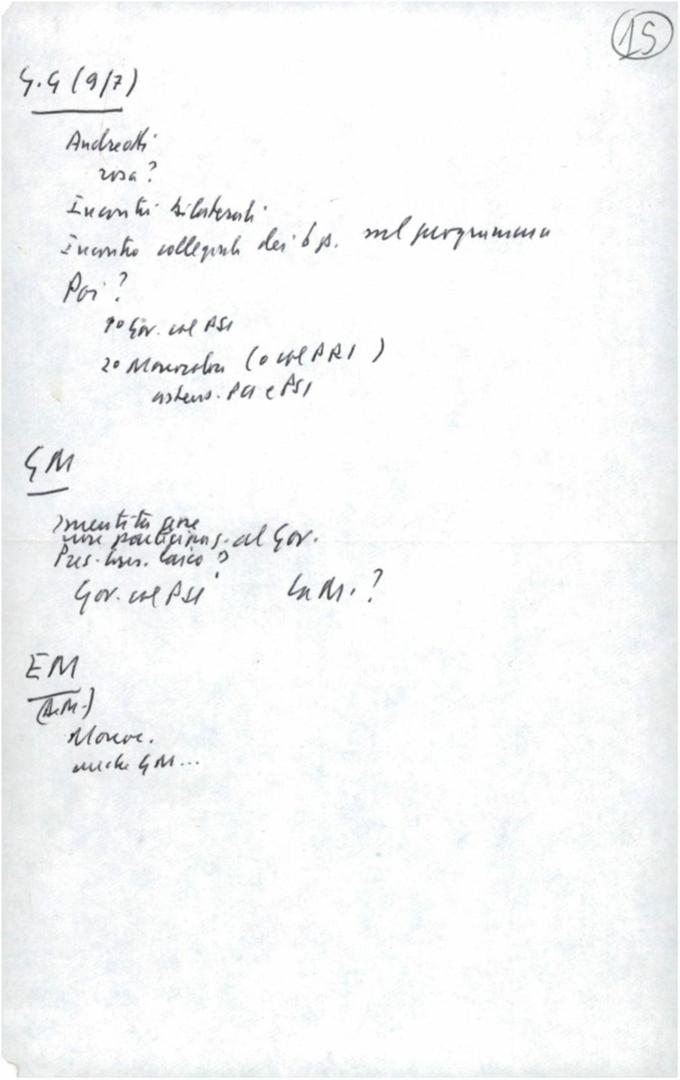 15
G.G (9/7)
Andreotti
rosa?
Incontri bilaterali
Incontro collegiale dei 6 p. sul programma
Poi?
1° Gov. col PSI
2° Monocolore (o col PRI)
astens. PCI e PSI
GM
smentita
non partecipaz. al Gov.
Pres. laico?
Gov. col PSI La M.?
EM
Monoc.
anche GM...